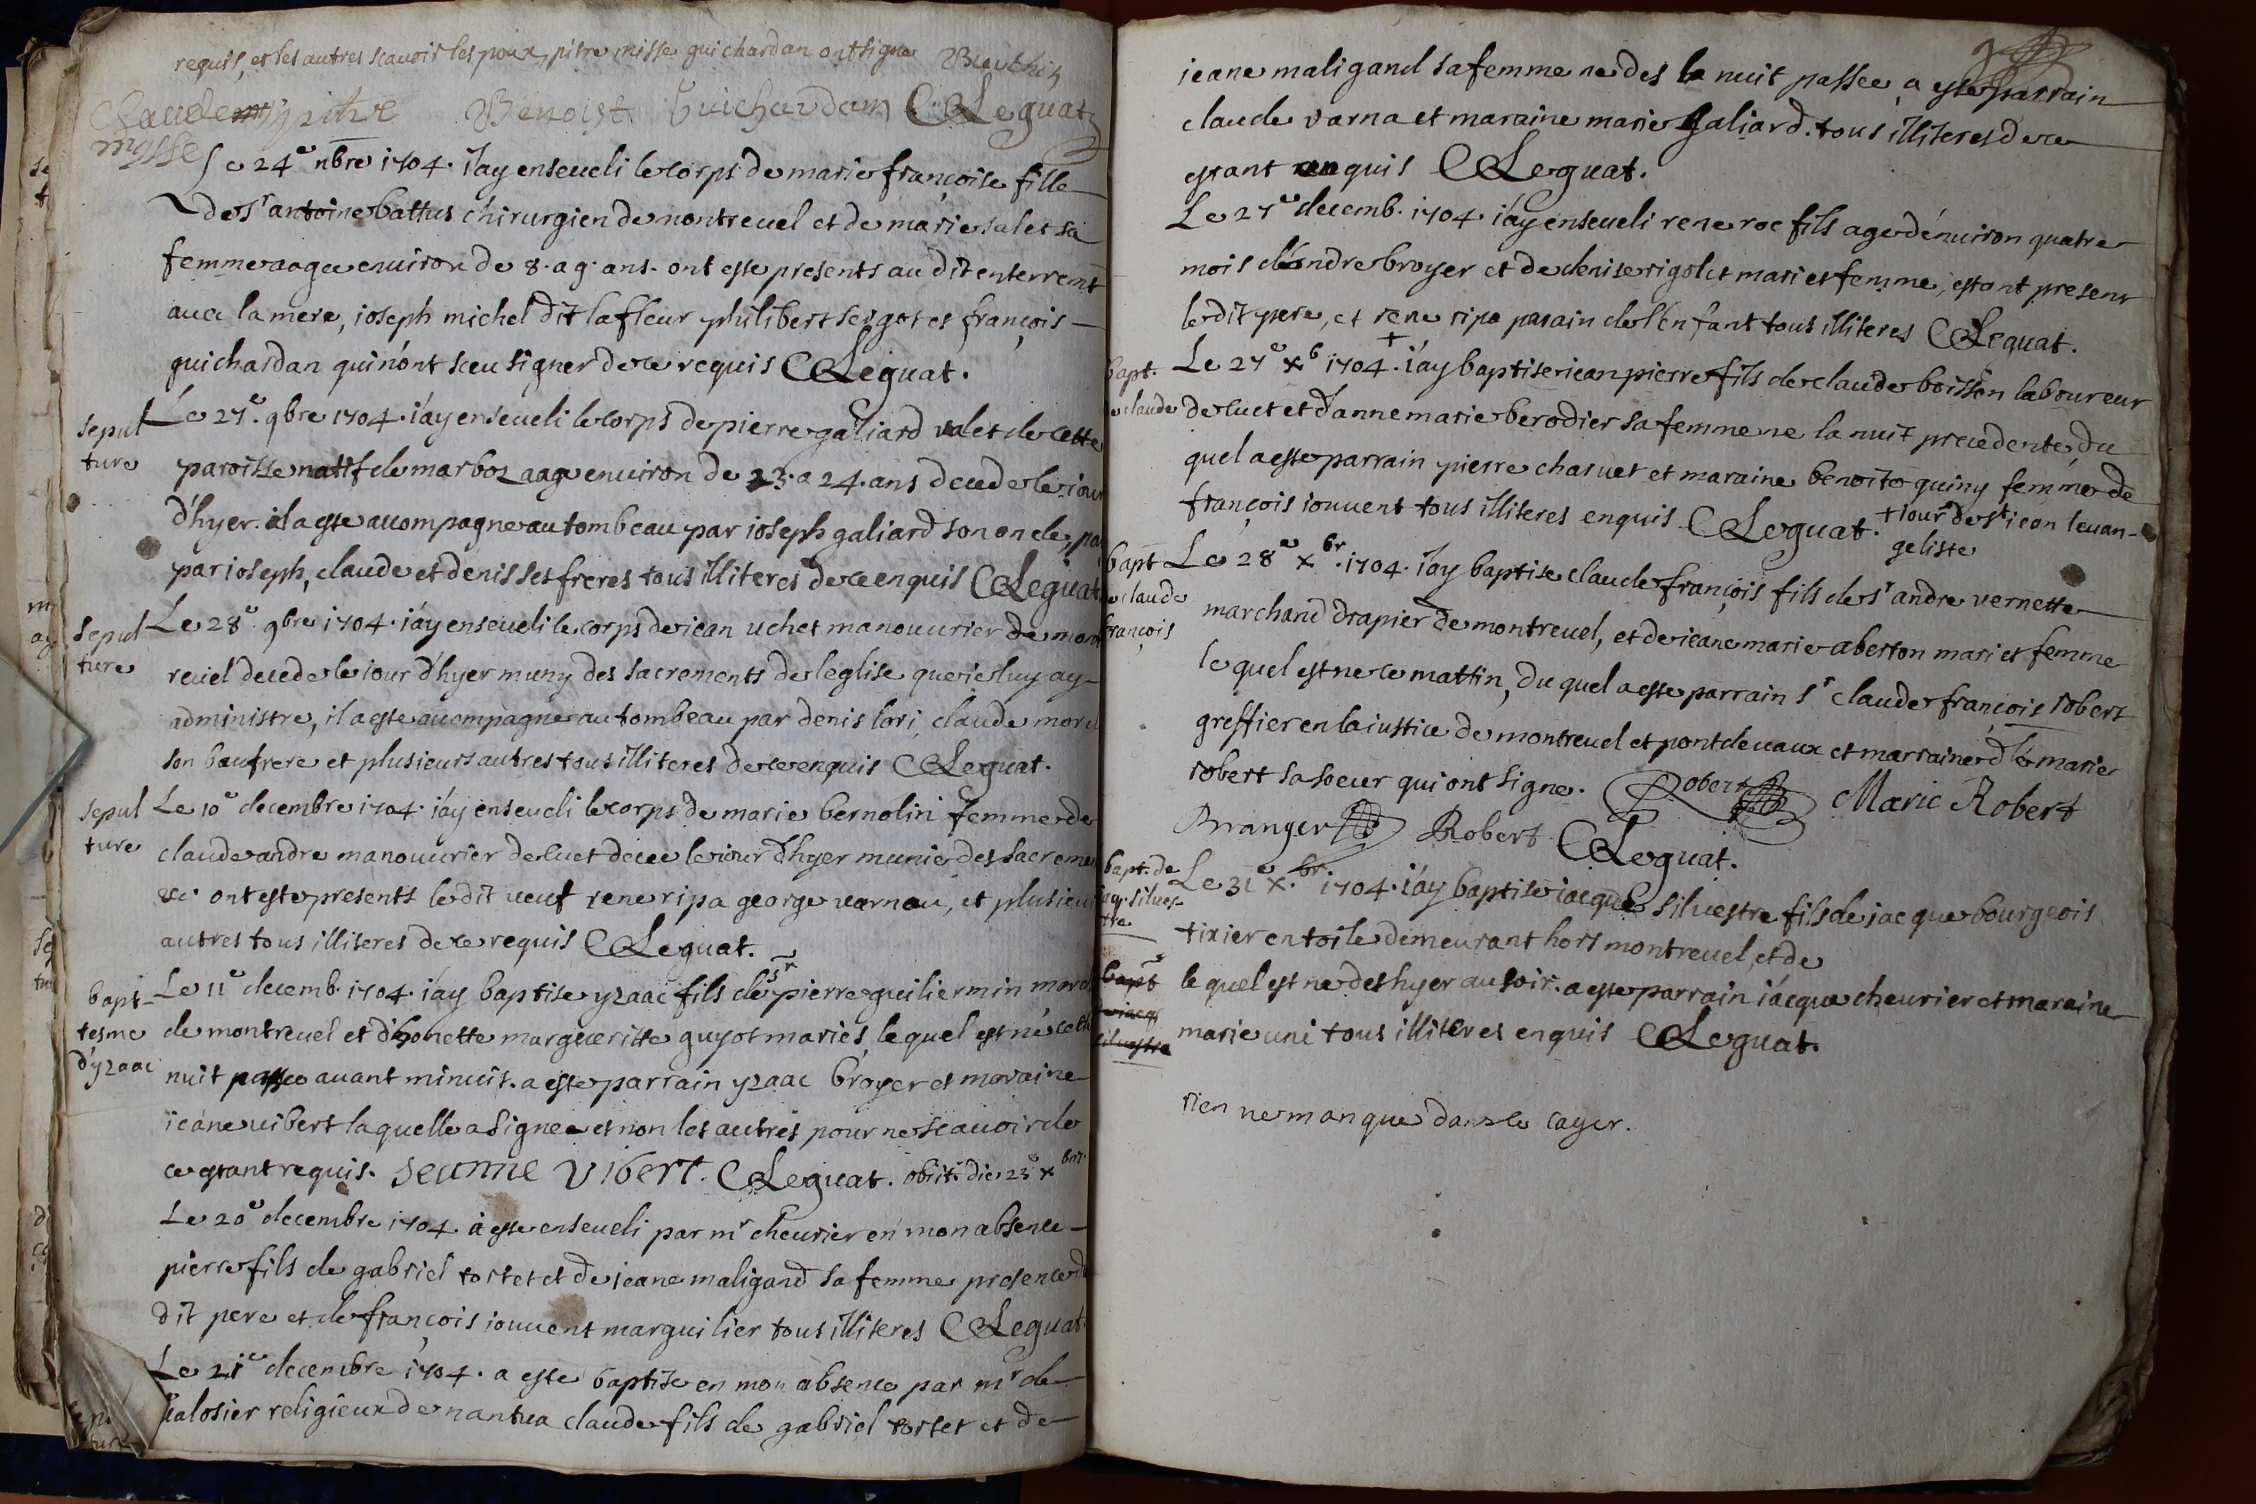 requis, et les autres scavoir lespoux, pitre misse guichardan ont signe
Claude pitre Benoist Guichardam CLeguat
mysse
Le 24e nbre 1704. j'ay enseveli le corps de marie françoise fille
de sr antoine battus chirurgien de montrevel et de marie salet sa
femme aagee environ de 8. a 9. ans. ont esté presents au dit enterremt
avec la mere, ioseph michel dit lafleur philibert sergot et françois
guichardan qui n'ont sceu signer de ce requis CLeguat.
sepul
ture
Le 27e. 9bre 1704. i'ay enseveli le corps de pierre galiard valet de cette
paroisse natif de marboz aage environ de 23. a 24. ans decede le iour
d'hyer. il a esté accompagne au tombeau par ioseph galiard son oncle, pa
par ioseph, claude et denis ses freres tous illiteres de ce enquis CLeguat
sepul
ture
Le 28e. 9bre 1704. i'ay enseveli le corps de iean uchet manouvrier de mont
revel decede le iour d'hyer muny des sacrements de l'eglise que ie luy ay
administre, il a esté accompagne au tombeau par denis lori, claude morel
son beaufrere et plusieurs autres tous illiteres de ce enquis CLeguat.
sepul
ture
Le 10e decembre 1704. i'ay enseveli le corps de marie bernolin femme de
claude andre manouvrier de cuet decee le iour d'hyer munie des sacreme
&c. ont esté presents le dit veuf rene ripa george varnau, et plusieur
autres tous illiteres de ce requis CLeguat.
bapt-
tesme
d'yzaac
Le 11e decemb. 1704. i'ay baptise yzaac fils de sr pierre guiliermin march
de montrevel et d'honette margueritte guyot mariés, le quel est né cette
nuit passee avant minuit. a esté parrain yzaac broyer et maraine
ieane vibert laquelle a signee et non les autres pour ne scavoir de
ce estant requis. Jeanne Vibert. CLeguat. obiit die 23e xbris
Le 20e decembre 1704. a esté enseveli par mr chevrier en mon absence
pierre fils de gabriel tortet et de ieane maligand sa femme presence du
dit pere et de françois iouvent marguilier tous illiteres CLeguat.
Le 21e decembre 1704. a esté baptise en mon absence par mr de
valosier religieux de nantua claude fils de gabriel tortet et de
ieane maligand sa femme ne des la nuit passee, a esté parrain
claude varna et maraine marie galiard. tous illiteres de ce
estant enquis CLeguat.
Le 27e decemb. 1704. i'ay enseveli rene roc fils age d'environ quatre
mois d'andre broyer et de denise rigolet mari et femme, estant present
le dit pere, et rene ripa parain de l'enfant tous illiteres CLeguat.
bapt.
de claude
Le 27e xb 1704. + i'ay baptise iean pierre fils de claude boisson laboureur
de cuet et d'anne marie berodier sa femme ne la nuit precedente, du
quel a esté parrain pierre charvet et maraine benoite quiny femme de
françois iouvent tous illiteres enquis CLeguat. + iour de st iean levan-
geliste
bapt
de claude
françois
Le 28e xbr. 1704. i'ay baptise claude françois fils de sr andre vernette
marchand drapier de montrevel, et de ieane marie aberton mari et femme
le quel est ne ce mattin, du quel a esté parrain sr claude françois robert
greffier en la iustice de montrevel et pontdevaux et marraine dlle marie
robert sa soeur qui ont signe. Robert Marie Robert
Branger Robert CLeguat.
bapt. de
iaq. silves-
tre
Le 31e x.br 1704. i'ay baptise iacque silvestre fils de iacque bourgeois
tixier en toile demeurant hors montrevel, et de
bapt
de iacq
silvestre
le quel est ne des hyer au soir. a esté parrain iacque chevrier et maraine
marie uni tous illiteres enquis CLeguat.
rien ne manque dans le cayer.